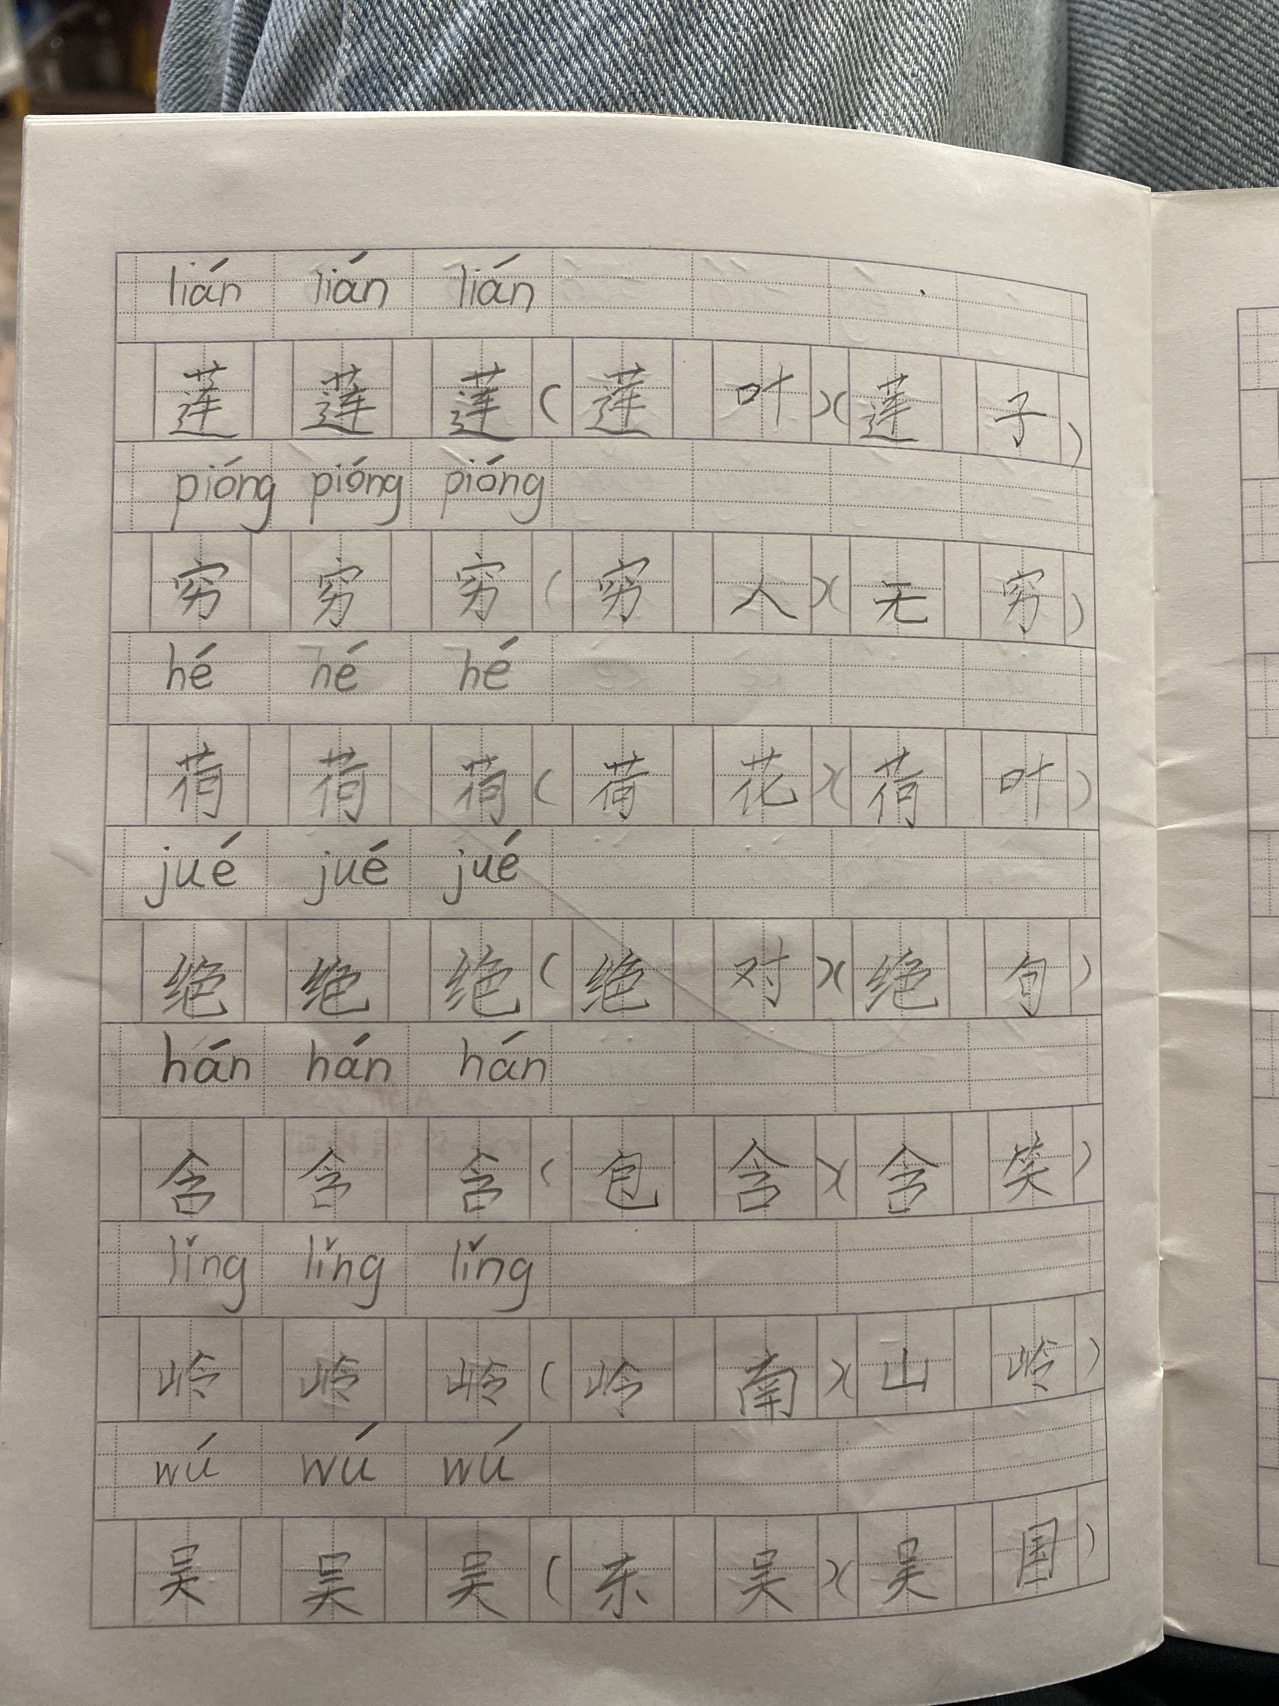 lián lián lián
莲 莲 莲(莲 叶)(莲 子)
pióng pióng pióng
穷 穷 穷(穷 人)(无 穷)
hé hé hé
荷 荷 荷(荷 花)(荷 叶)
jué jué jué
绝 绝 绝(绝 对)(绝 句)
hán hán hán
含 含 含(包 含)(含 笑)
lǐng lǐng lǐng
岭 岭 岭(岭 南)(山 岭)
wú wú wú
吴 吴 吴(东 吴)(吴 国)